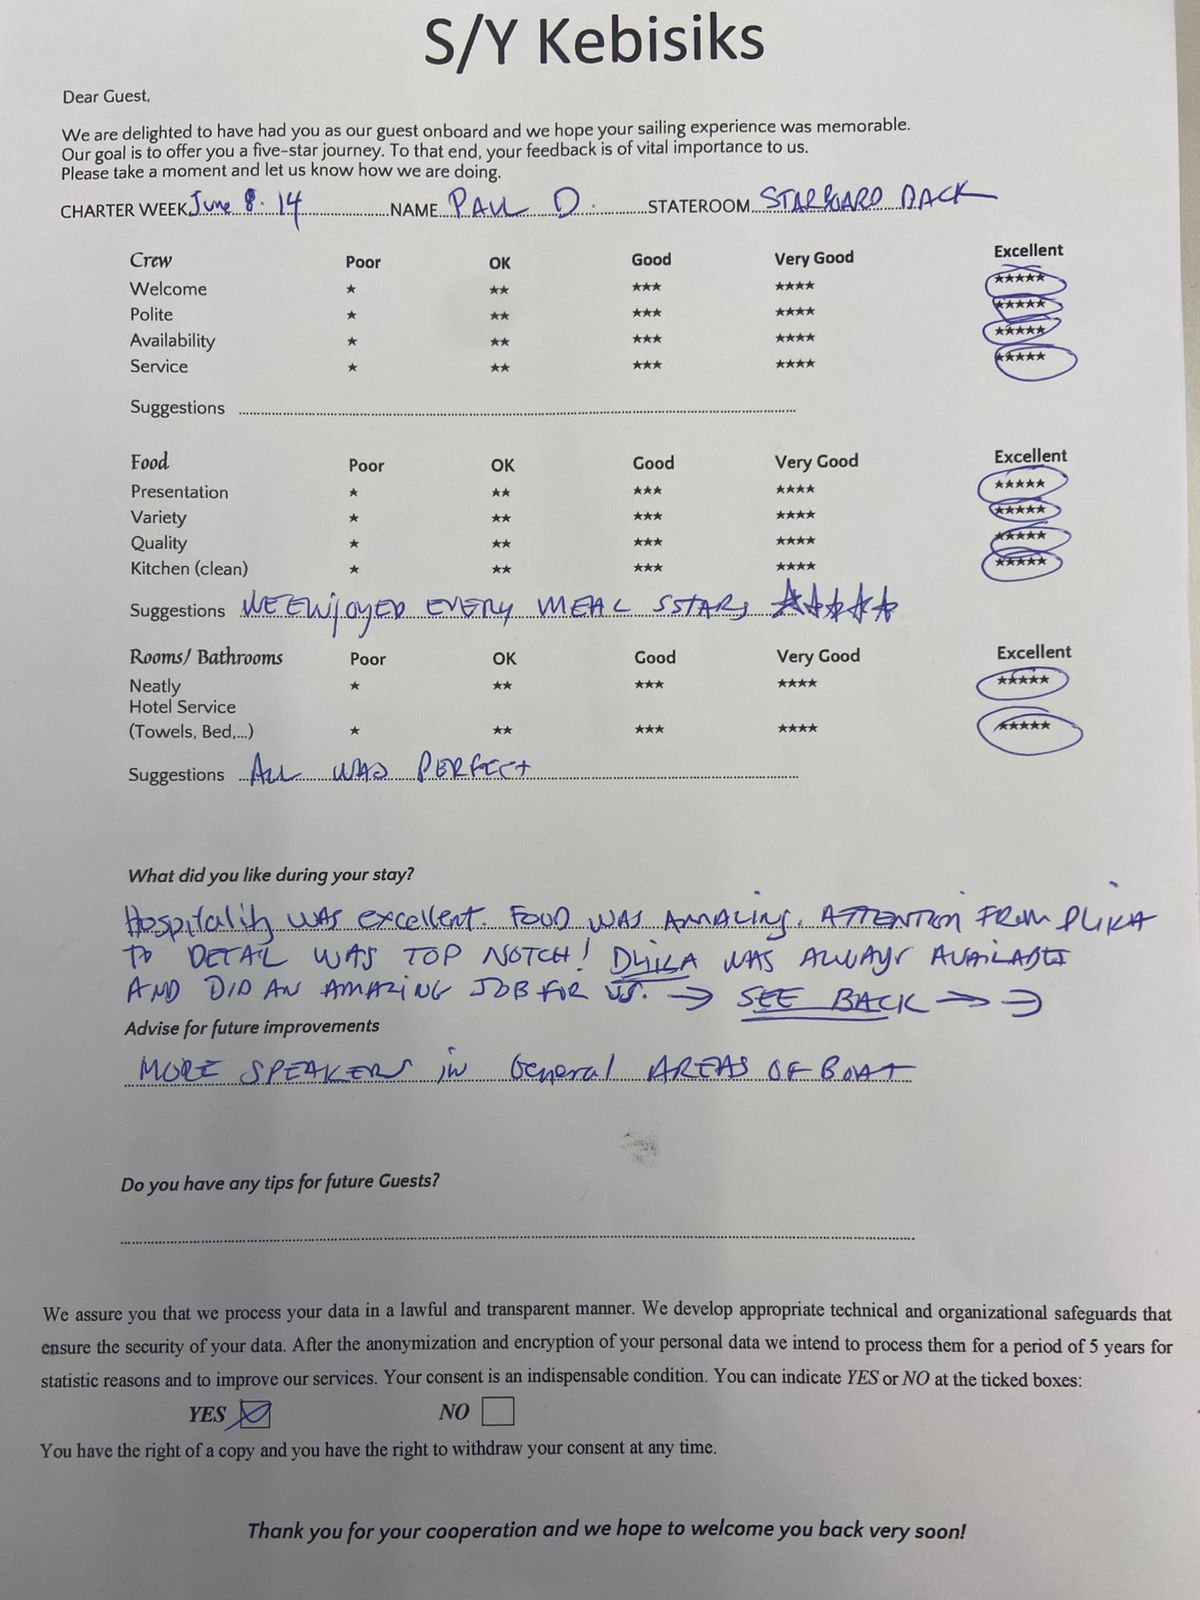 S/Y Kebisiks
Dear Guest,
We are delighted to have had you as our guest onboard and we hope your sailing experience was memorable.
Our goal is to offer you a five-star journey. To that end, your feedback is of vital importance to us.
Please take a moment and let us know how we are doing.
CHARTER WEEK June 8-14 NAME PAUL D. STATEROOM STARBOARD BACK
Crew Poor OK Good Very Good Excellent
Welcome ★ ★★ ★★★ ★★★★ ★★★★★
Polite ★ ★★ ★★★ ★★★★ ★★★★★
Availability ★ ★★ ★★★ ★★★★ ★★★★★
Service ★ ★★ ★★★ ★★★★ ★★★★★
Suggestions
Food Poor OK Good Very Good Excellent
Presentation ★ ★★ ★★★ ★★★★ ★★★★★
Variety ★ ★★ ★★★ ★★★★ ★★★★★
Quality ★ ★★ ★★★ ★★★★ ★★★★★
Kitchen (clean) ★ ★★ ★★★ ★★★★ ★★★★★
Suggestions WE ENJOYED EVERY MEAL 5STARS ★★★★★
Rooms/ Bathrooms Poor OK Good Very Good Excellent
Neatly ★ ★★ ★★★ ★★★★ ★★★★★
Hotel Service
(Towels, Bed,...) ★ ★★ ★★★ ★★★★ ★★★★★
Suggestions ALL WAS PERFECT
What did you like during your stay?
Hospitality WAS excellent. FOOD WAS AMAZING. ATTENTION FROM
TO DETAIL WAS TOP NOTCH! WAS ALWAYS AVAILABLE
AND DID AN AMAZING JOB FOR US. → SEE BACK → →
Advise for future improvements
MORE SPEAKERS in General AREAS OF BOAT
Do you have any tips for future Guests?
We assure you that we process your data in a lawful and transparent manner. We develop appropriate technical and organizational safeguards that
ensure the security of your data. After the anonymization and encryption of your personal data we intend to process them for a period of 5 years for
statistic reasons and to improve our services. Your consent is an indispensable condition. You can indicate YES or NO at the ticked boxes:
YES NO
You have the right of a copy and you have the right to withdraw your consent at any time.
Thank you for your cooperation and we hope to welcome you back very soon!